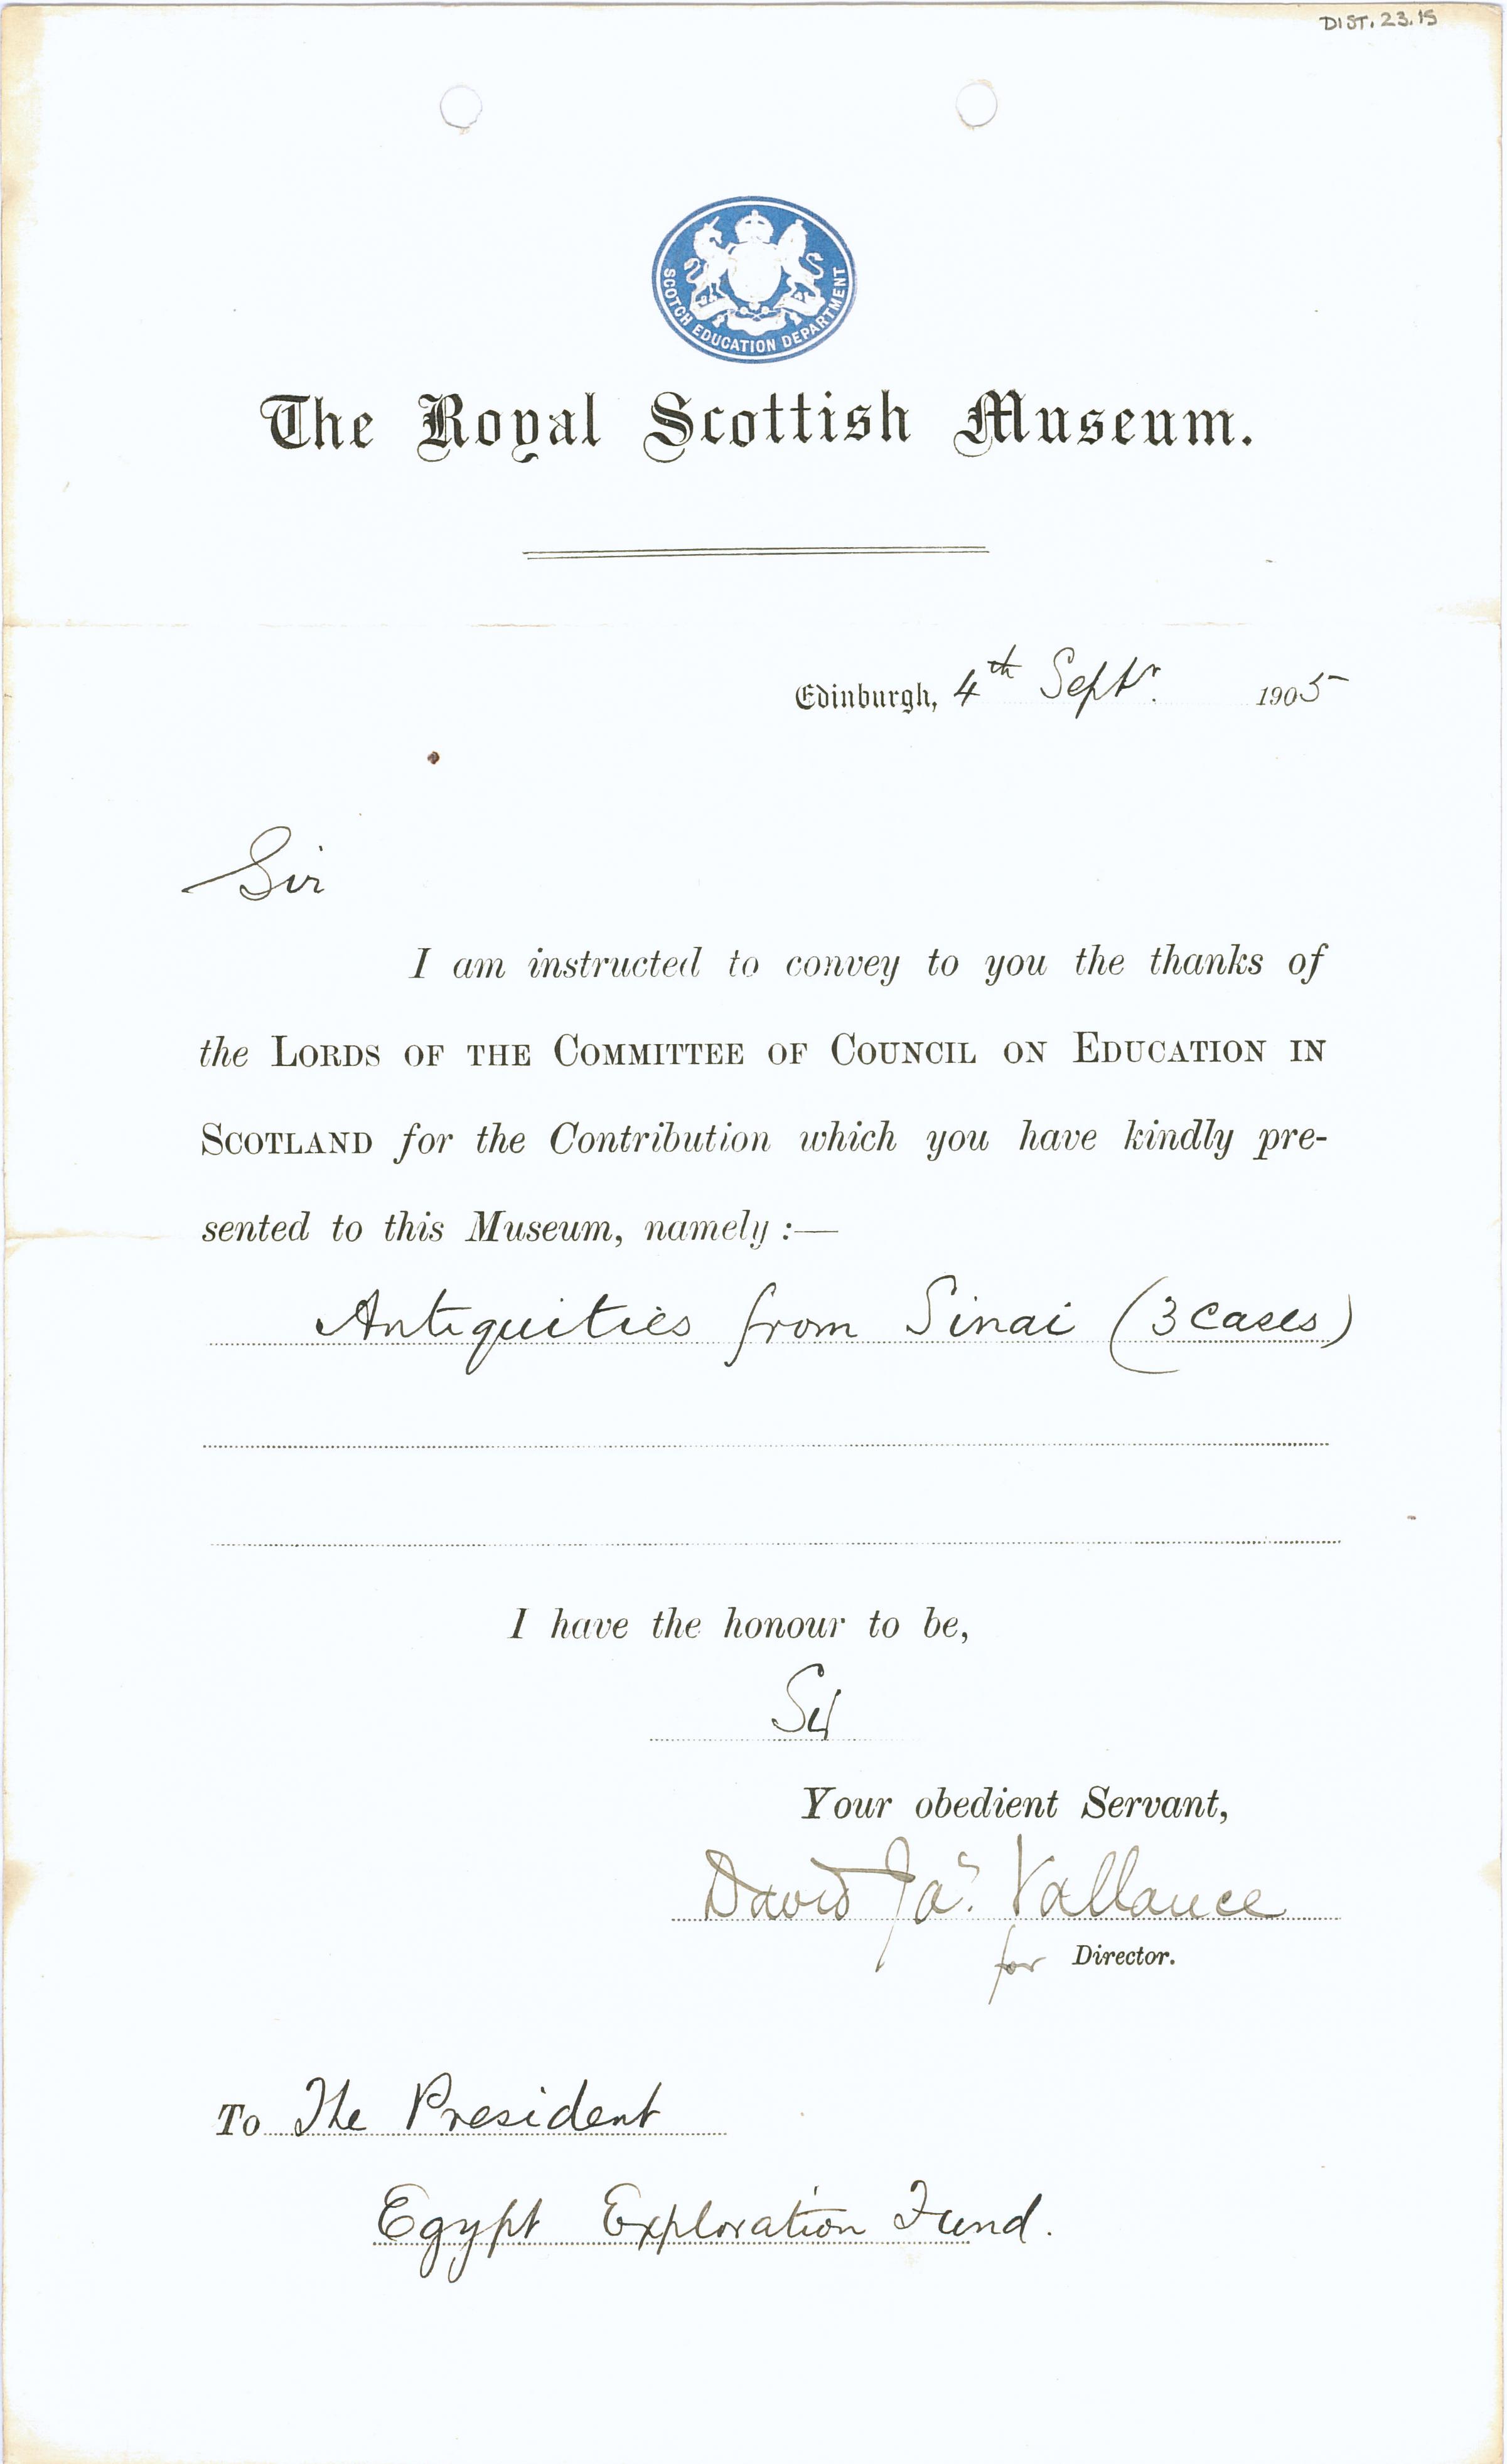 DIST. 23.15
SCOTCH EDUCATION DEPARTMENT
The Royal Scottish Museum.
Edinburgh, 4th Septr. 1905
Sir
I am instructed to convey to you the thanks of
the LORDS OF THE COMMITTEE OF COUNCIL ON EDUCATION IN
SCOTLAND for the Contribution which you have kindly pre-
sented to this Museum, namely :—
Antiquities from Sinai (3 cases)
I have the honour to be,
Sir
Your obedient Servant,
David Jas. Vallance
for Director.
To The President
Egypt Exploration Fund.